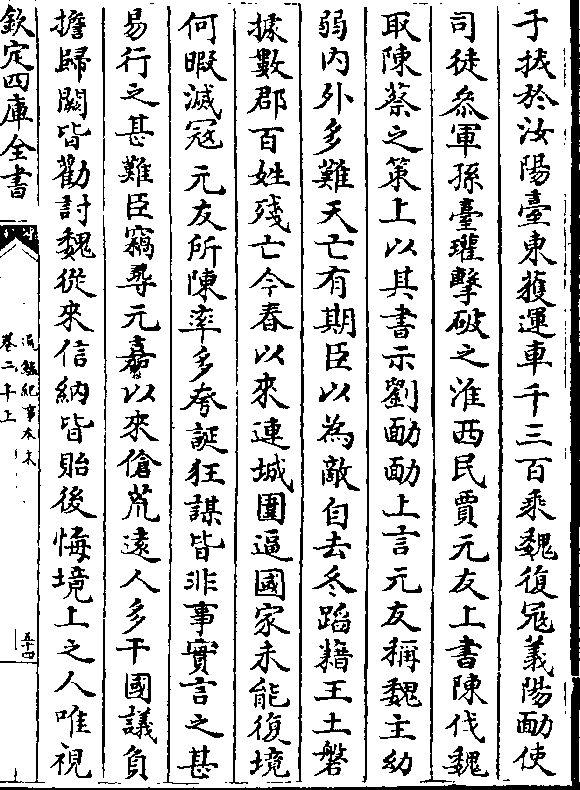 于拔於汝陽臺東獲運車千三百乘魏復寇義陽勔使
司徒叅軍孫臺瓘擊破之淮西民賈元友上書陳伐魏
取陳蔡之策上以其書示劉勔勔上言元友稱魏主幼
弱内外多難天亡有期臣以為敵自去冬蹈藉王土磐
據數郡百姓殘亡今春以來連城圍逼國家未能復境
何暇滅寇元友所陳率多夸誕狂謀皆非事實言之甚
易行之甚難臣竊尋元嘉以來傖荒遠人多干國議負
擔歸闕皆勸討魏從來信納皆貽後悔境上之人唯視
欽定四庫全書
通鑑紀事本末
卷二十上
五十四